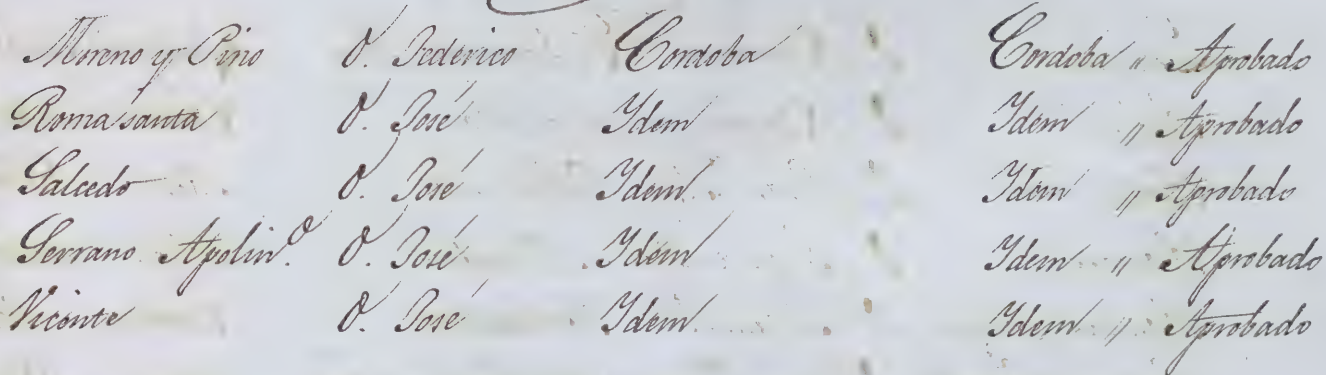 Moreno y Pino D. Federico Cordoba Cordoba " Aprobado
Romasanta D. José Idem Idem " Aprobado
Salcedo D. José Idem Idem " Aprobado
Serrano Apolin.º D. José Idem Idem " Aprobado
Vicente D. José Idem Idem " Aprobado